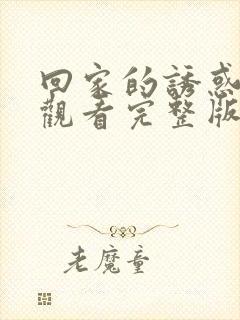 回家的誘惑
觀看完整版
老魔童